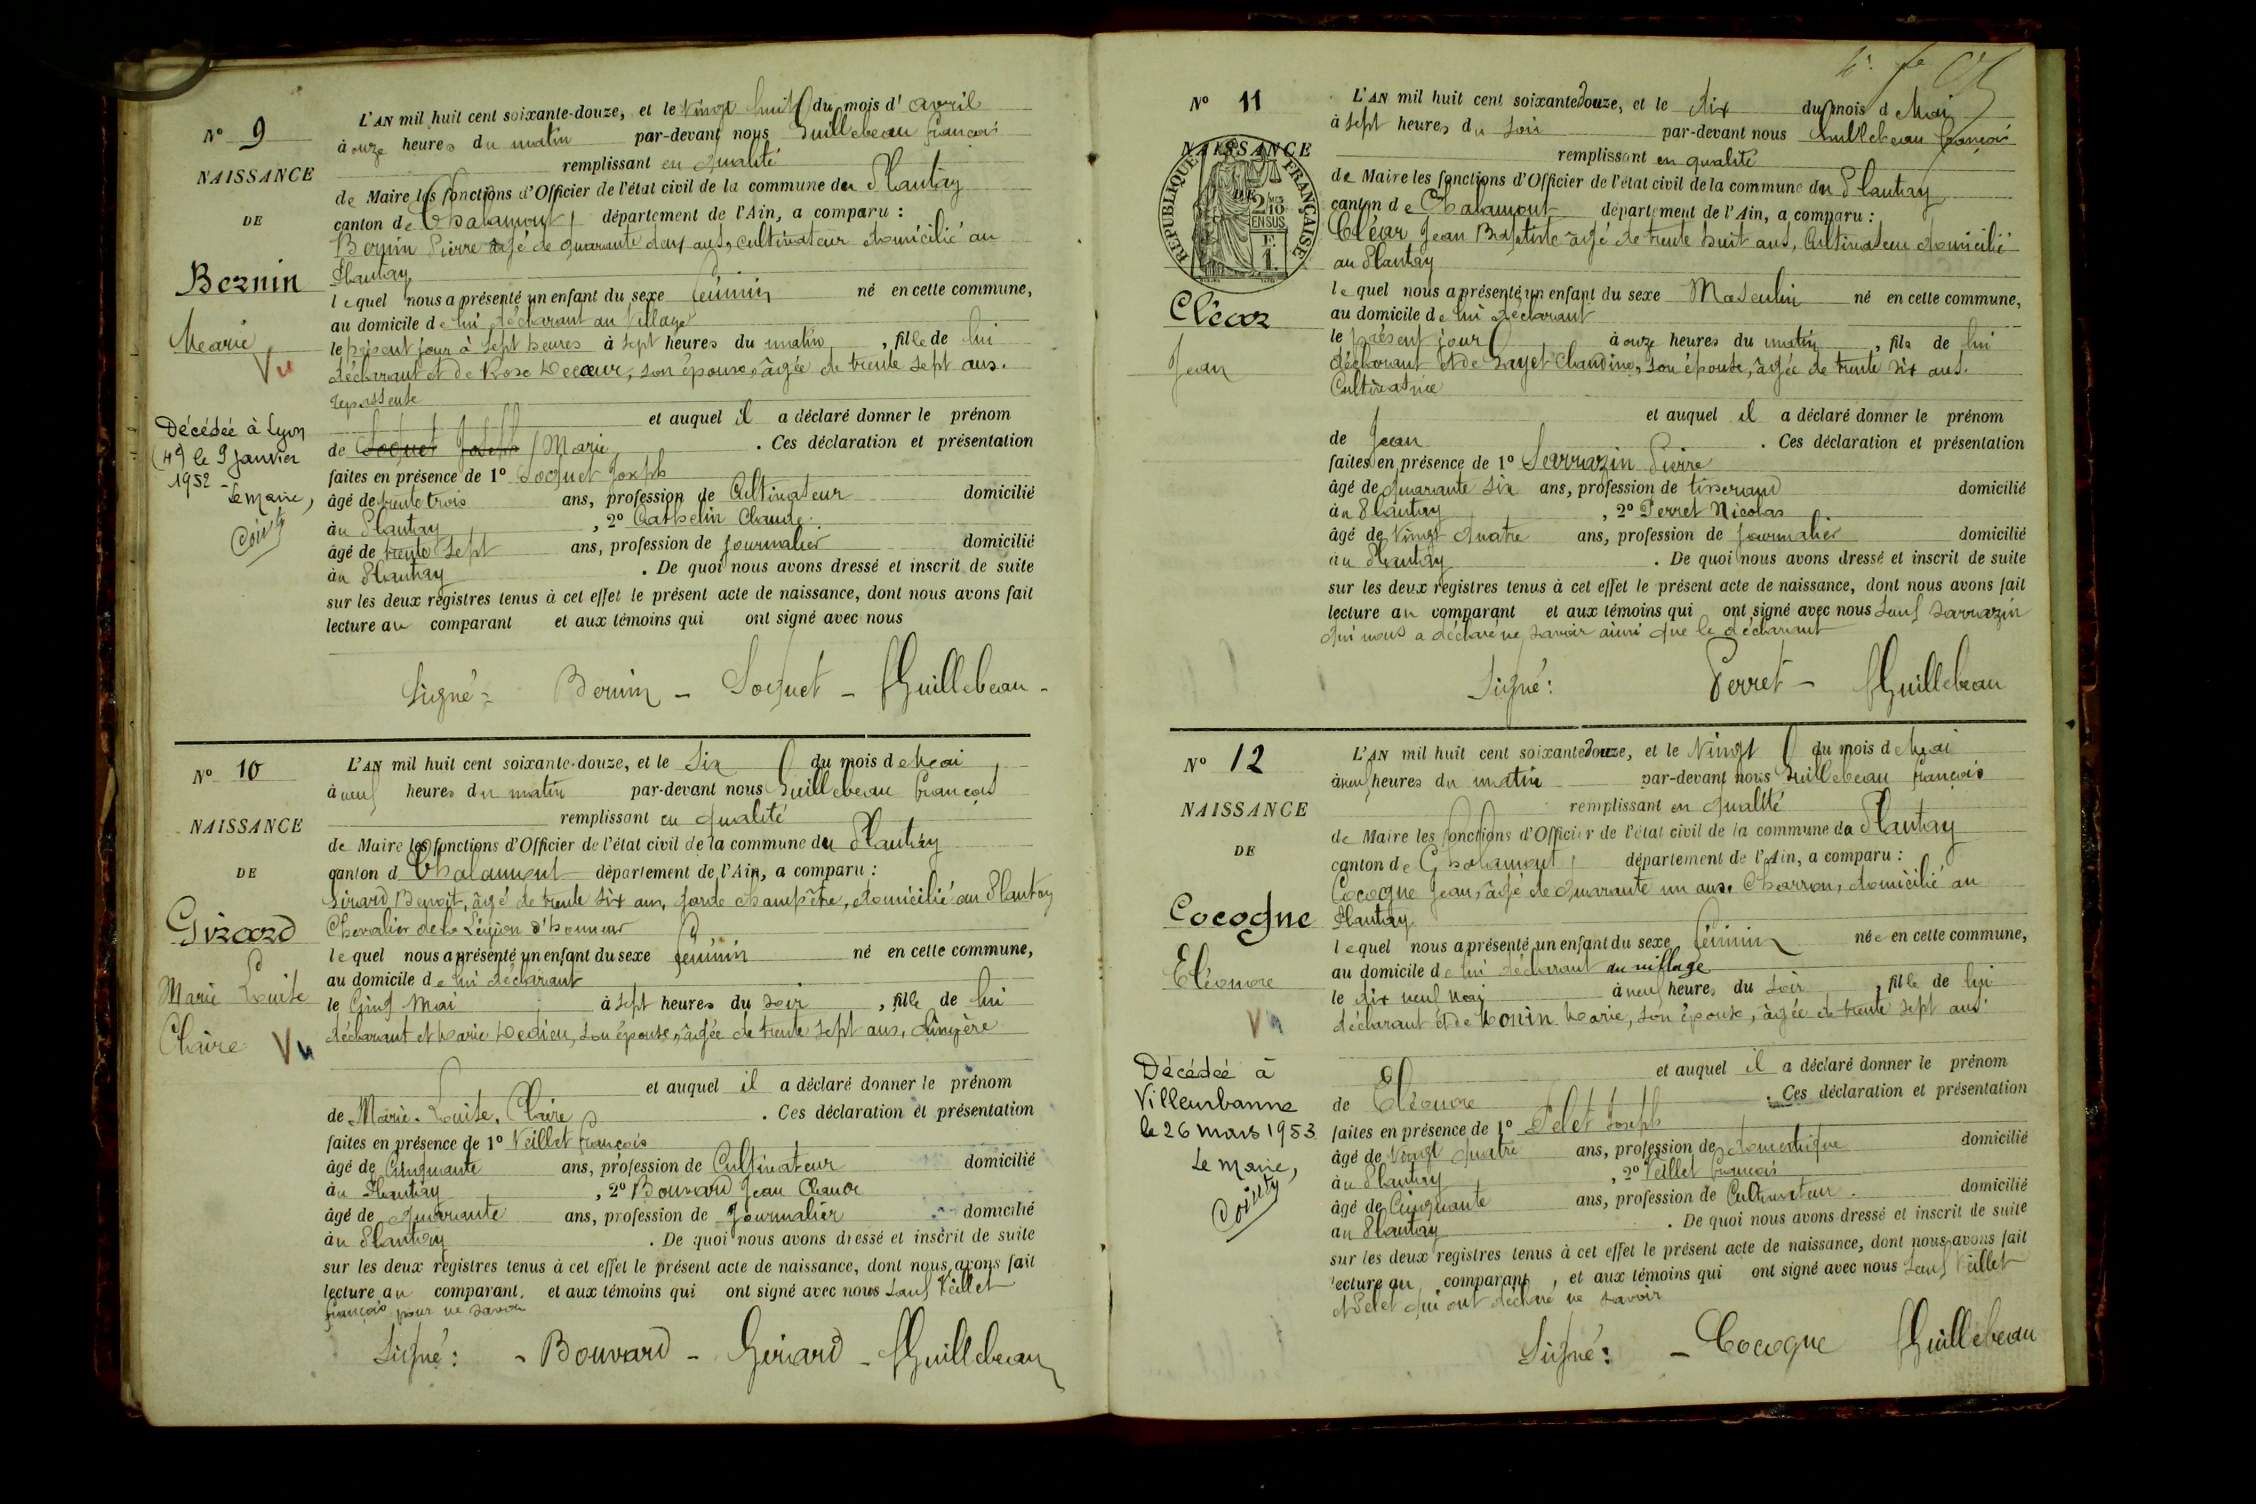 N° 9
NAISSANCE
DE
Bernin
Marie
Vu
Décédée à Lyon
(4e) le 9 Janvier
1952 -
Le Maire,
L'AN mil huit cent soixante-douze, et le Vingt huit du mois d' avril
à onze heures du matin par-devant nous Guillebeau françois
remplissant en qualité
de Maire les fonctions d'Officier de l'état civil de la commune du Plantay
canton de Chalamont, département de l'Ain, a comparu :
Bernin Pierre âgé de quarante deux ans, cultivateur domicilié au
Plantay
lequel nous a présenté un enfant du sexe féminin né en cette commune,
au domicile de lui déclarant au Village
le présent jour à sept heures à sept heures du matin, fille de lui
déclarant et de Rose Decoeur, son épouse, âgée de trente sept ans.
repasseuse
et auquel il a déclaré donner le prénom
de Socquet Joseph / Marie . Ces déclaration et présentation
faites en présence de 1° Socquet Joseph
âgé de trente trois ans, profession de Cultivateur domicilié
au Plantay , 2° Cathelin Claude
âgé de trente sept ans, profession de journalier domicilié
au Plantay . De quoi nous avons dressé et inscrit de suite
sur les deux registres tenus à cet effet le présent acte de naissance, dont nous avons fait
lecture au comparant et aux témoins qui ont signé avec nous
Signé : Bernin - Socquet - fGuillebeau -
N° 10
NAISSANCE
DE
Girard
Marie Louise
Claire Vu
L'AN mil huit cent soixante-douze, et le Six du mois de Mai
à neuf heures du matin par-devant nous Guillebeau françois
remplissant en qualité
de Maire les fonctions d'Officier de l'état civil de la commune du Plantay
canton d Chalamont département de l'Ain, a comparu :
Girard Benoit, âgé de trente six ans, garde champêtre, domicilié au Plantay
Chevalier de la Légion d'honneur
lequel nous a présenté un enfant du sexe féminin né en cette commune,
au domicile de lui déclarant
le Cinq Mai à sept heures du soir , fille de lui
déclarant et Marie Dedieu, son épouse, âgée de trente sept ans, lingère
et auquel il a déclaré donner le prénom
de Marie. Louise. Claire . Ces déclaration et présentation
faites en présence de 1° Veillet françois
âgé de Cinquante ans, profession de Cultivateur domicilié
au Plantay , 2° Bouvard Jean Claude
âgé de quarante ans, profession de Journalier domicilié
au Plantay . De quoi nous avons dressé et inscrit de suite
sur les deux registres tenus à cet effet le présent acte de naissance, dont nous avons fait
lecture au comparant, et aux témoins qui ont signé avec nous sauf Veillet
françois pour ne savoir
Signé : - Bouvard - Girard - fGuillebeau
N° 11
NAISSANCE
DE
RÉPUBLIQUE FRANÇAISE
2/10 EN SUS
F. 1.
Cléar
Jean
L'AN mil huit cent soixante douze, et le dix du mois d Mai
à sept heures du soir par-devant nous Guillebeau françois
remplissant en qualité
de Maire les fonctions d'Officier de l'état civil de la commune du Plantay
canton de Chalamont département de l'Ain, a comparu :
Cléar Jean Baptiste âgé de trente huit ans, Cultivateur domicilié
au Plantay
lequel nous a présenté un enfant du sexe Masculin né en cette commune,
au domicile de lui déclarant
le présent jour à onze heures du matin , fils de lui
déclarant et de Sayet Claudine, son épouse, âgée de trente six ans.
Cultivatrice
et auquel il a déclaré donner le prénom
de Jean . Ces déclaration et présentation
faites en présence de 1° Sarrazin Pierre
âgé de quarante six ans, profession de tisserand domicilié
au Plantay , 2° Perret Nicolas
âgé de Vingt quatre ans, profession de journalier domicilié
au Plantay . De quoi nous avons dressé et inscrit de suite
sur les deux registres tenus à cet effet le présent acte de naissance, dont nous avons fait
lecture au comparant et aux témoins qui ont signé avec nous sauf Sarrazin
qui nous a déclaré ne savoir ainsi que le déclarant
Signé : Perret - fGuillebeau
N° 12
NAISSANCE
DE
Cocogne
Eléonore
Vu
Décédée à
Villeurbanne
le 26 mars 1953
Le Maire,
L'AN mil huit cent soixante douze, et le Vingt du mois d Mai
à neuf heures du matin par-devant nous Guillebeau françois
remplissant en qualité
de Maire les fonctions d'Officier de l'état civil de la commune du Plantay
canton de Chalamont, département de l'Ain, a comparu :
Cocogne Jean, âgé de quarante un ans. Charron, domicilié au
Plantay
lequel nous a présenté un enfant du sexe féminin née en cette commune,
au domicile de lui déclarant au village
le dix neuf Mai à neuf heures du soir , fille de lui
déclarant et de Monin Marie, son épouse, âgée de trente sept ans
et auquel il a déclaré donner le prénom
de Eléonore . Ces déclaration et présentation
faites en présence de 1° Pelet Joseph
âgé de Vingt quatre ans, profession de domestique domicilié
au Plantay , 2° Veillet françois
âgé de Cinquante ans, profession de Cultivateur . domicilié
au Plantay . De quoi nous avons dressé et inscrit de suite
sur les deux registres tenus à cet effet le présent acte de naissance, dont nous avons fait
lecture au comparant, et aux témoins qui ont signé avec nous sauf Veillet
et Pelet qui ont déclaré ne savoir
Signé : - Cocogne fGuillebeau